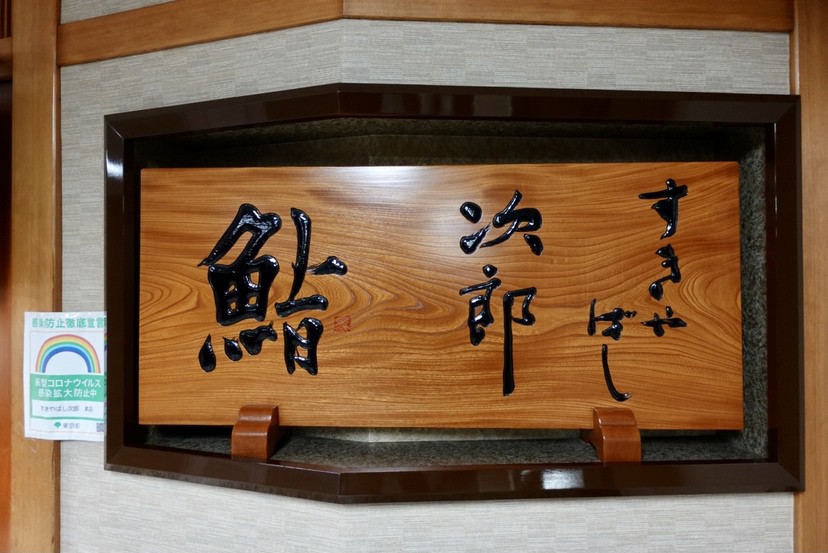 すきや
ばし
次郎
鮨
感染防止徹底宣言
新型コロナウイルス
感染拡大防止中
すきやばし次郎 本店
東京都